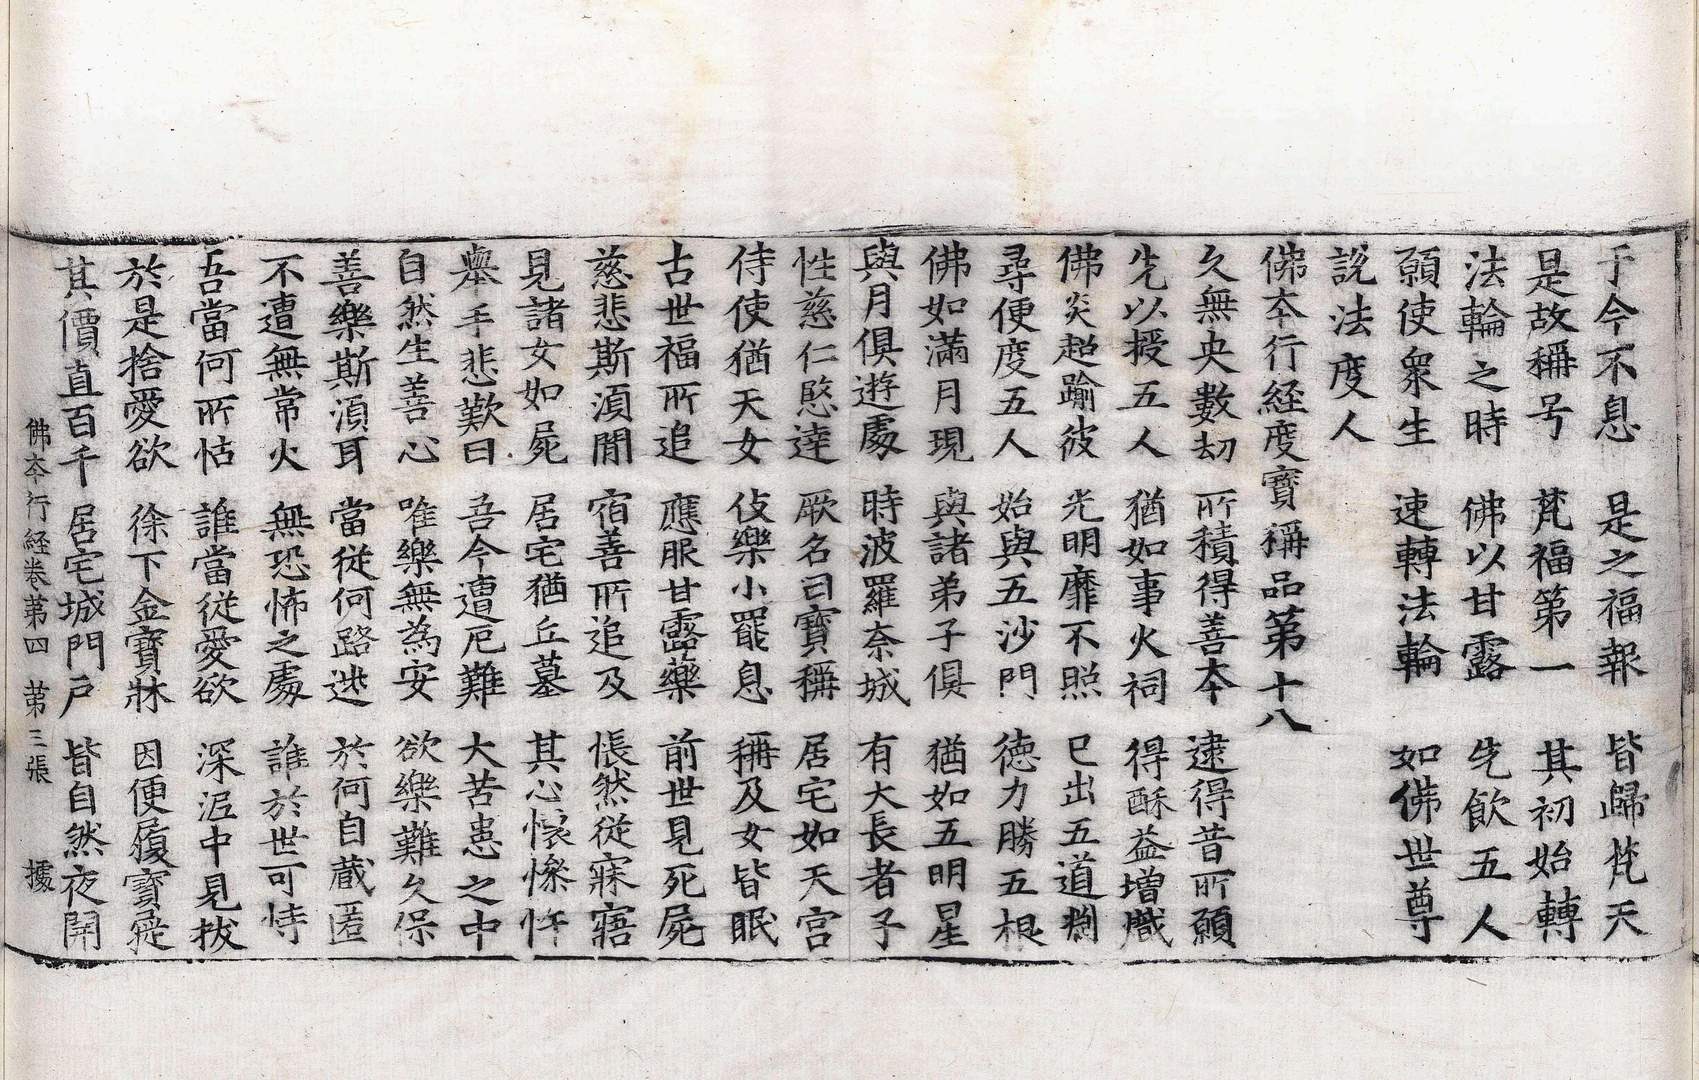 于今不息　是之福報　皆歸梵天
是故稱号　梵福第一　其初始轉
法輪之時　佛以甘露　先飮五人
願使衆生　速轉法輪　如佛世尊
說法度人
佛夲行経度寶稱品第十八
久無央數劫　所積得善夲　逮得昔所願
先以授五人　猶如事火祠　得酥益增熾
佛炎超踰彼　光明靡不照　已出五道
尋便度五人　始與五沙門　德力勝五根
佛如滿月現　與諸弟子俱　猶如五明星
與月俱遊處　時波羅柰城　有大長者子
性慈仁愍達　厥名曰寶稱　居宅如天宮
侍使猶天女　伎樂小罷息　稱及女皆眠
古世福所追　應服甘露藥　前世見死屍
慈悲斯湏閒　宿善所追及　悵然從寐寤
見諸女如屍　居宅猶丘墓　其心懷慘忤
舉手悲歎曰　吾今遭厄難　大苦患之中
自然生善心　唯樂無為安　欲樂難久保
善樂斯湏耳　當從何路逃　於何自藏匿
不遭無常火　無恐怖之處　誰於世可恃
吾當何所怙　誰當從愛欲　深泥中見拔
於是捨愛欲　徐下金寶牀　因便履寶屣
其價直百千　居宅城門戶　皆自然夜開
佛夲行経卷第四　第三張　據